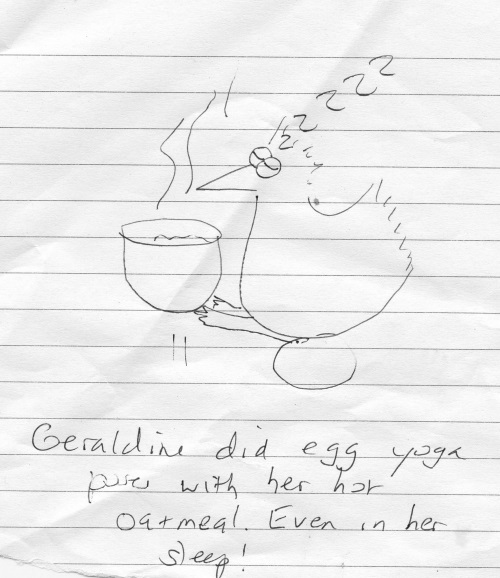 z z z z z
Geraldine did egg yoga
poses with her hot
oatmeal. Even in her
sleep!